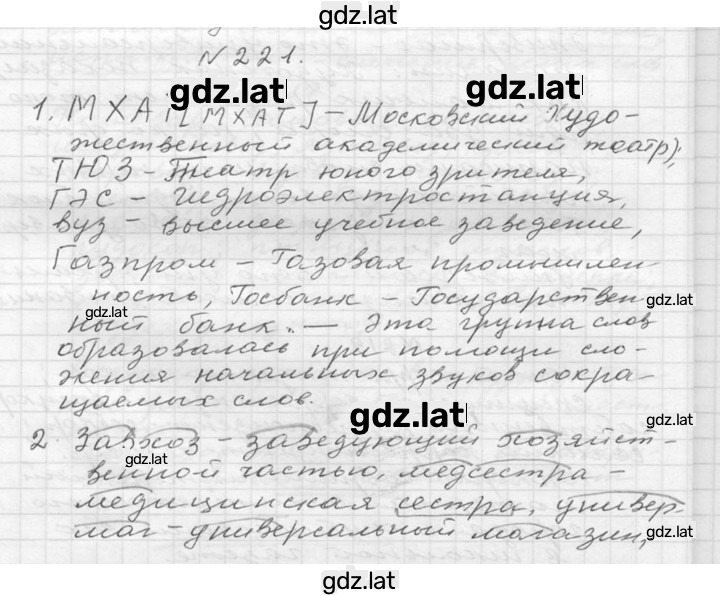 gdz.lat
N 221.
gdz.lat gdz.lat
1. МХАТ [МХАТ] – Московский Худо-
жественный академический театр),
ТЮЗ – Театр юного зрителя,
ГЭС – гидроэлектростанция,
вуз – высшее учебное заведение,
Газпром – Газовая промышлен-
ность, Госбанк – Государствен- gdz.lat
gdz.lat
ный банк. – Эта группа слов
образовалась при помощи сло-
жения начальных звуков сокра-
щаемых слов.
gdz.lat gdz.lat
2. Завхоз – заведующий хозяйст-
gdz.lat
венной частью, медсестра –
медицинская сестра, универ-
маг – универсальный магазин,
gdz.lat
gdz.lat
gdz.lat